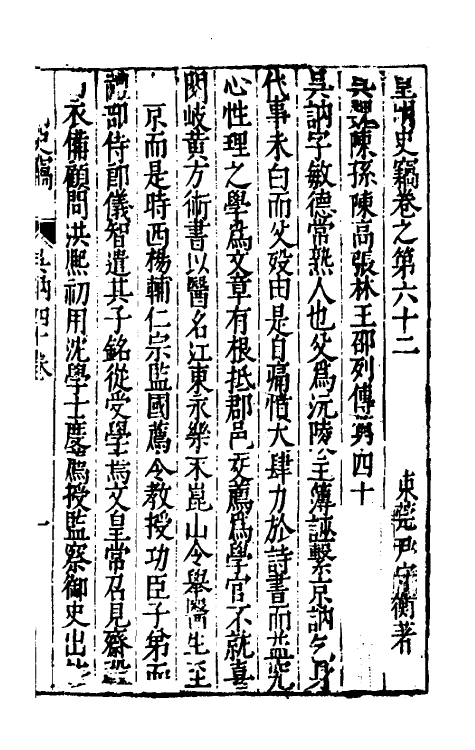 皇明史竊卷之第六十二
東莞尹守衡著
吳魏陳孫陳高張林王邵列傳第四十
吳訥字敏德常熟人也父爲沅陵主簿誣繫京訥乞身
代事未白而父歿由是自痛惜大肆力於詩書而益究
心性理之學爲文章有根抵郡邑交薦爲學官不就喜
閱岐黃方術書以醫名江東永樂末崑山令舉醫生至
京而是時西楊輔仁宗監國薦令教授功臣子弟而
禮部侍郎儀智遣其子銘從受學焉文皇常召見齋
衣備顧問洪熙初用沈學士度爲授監察御史出
史竊 吳訥四十卷 一